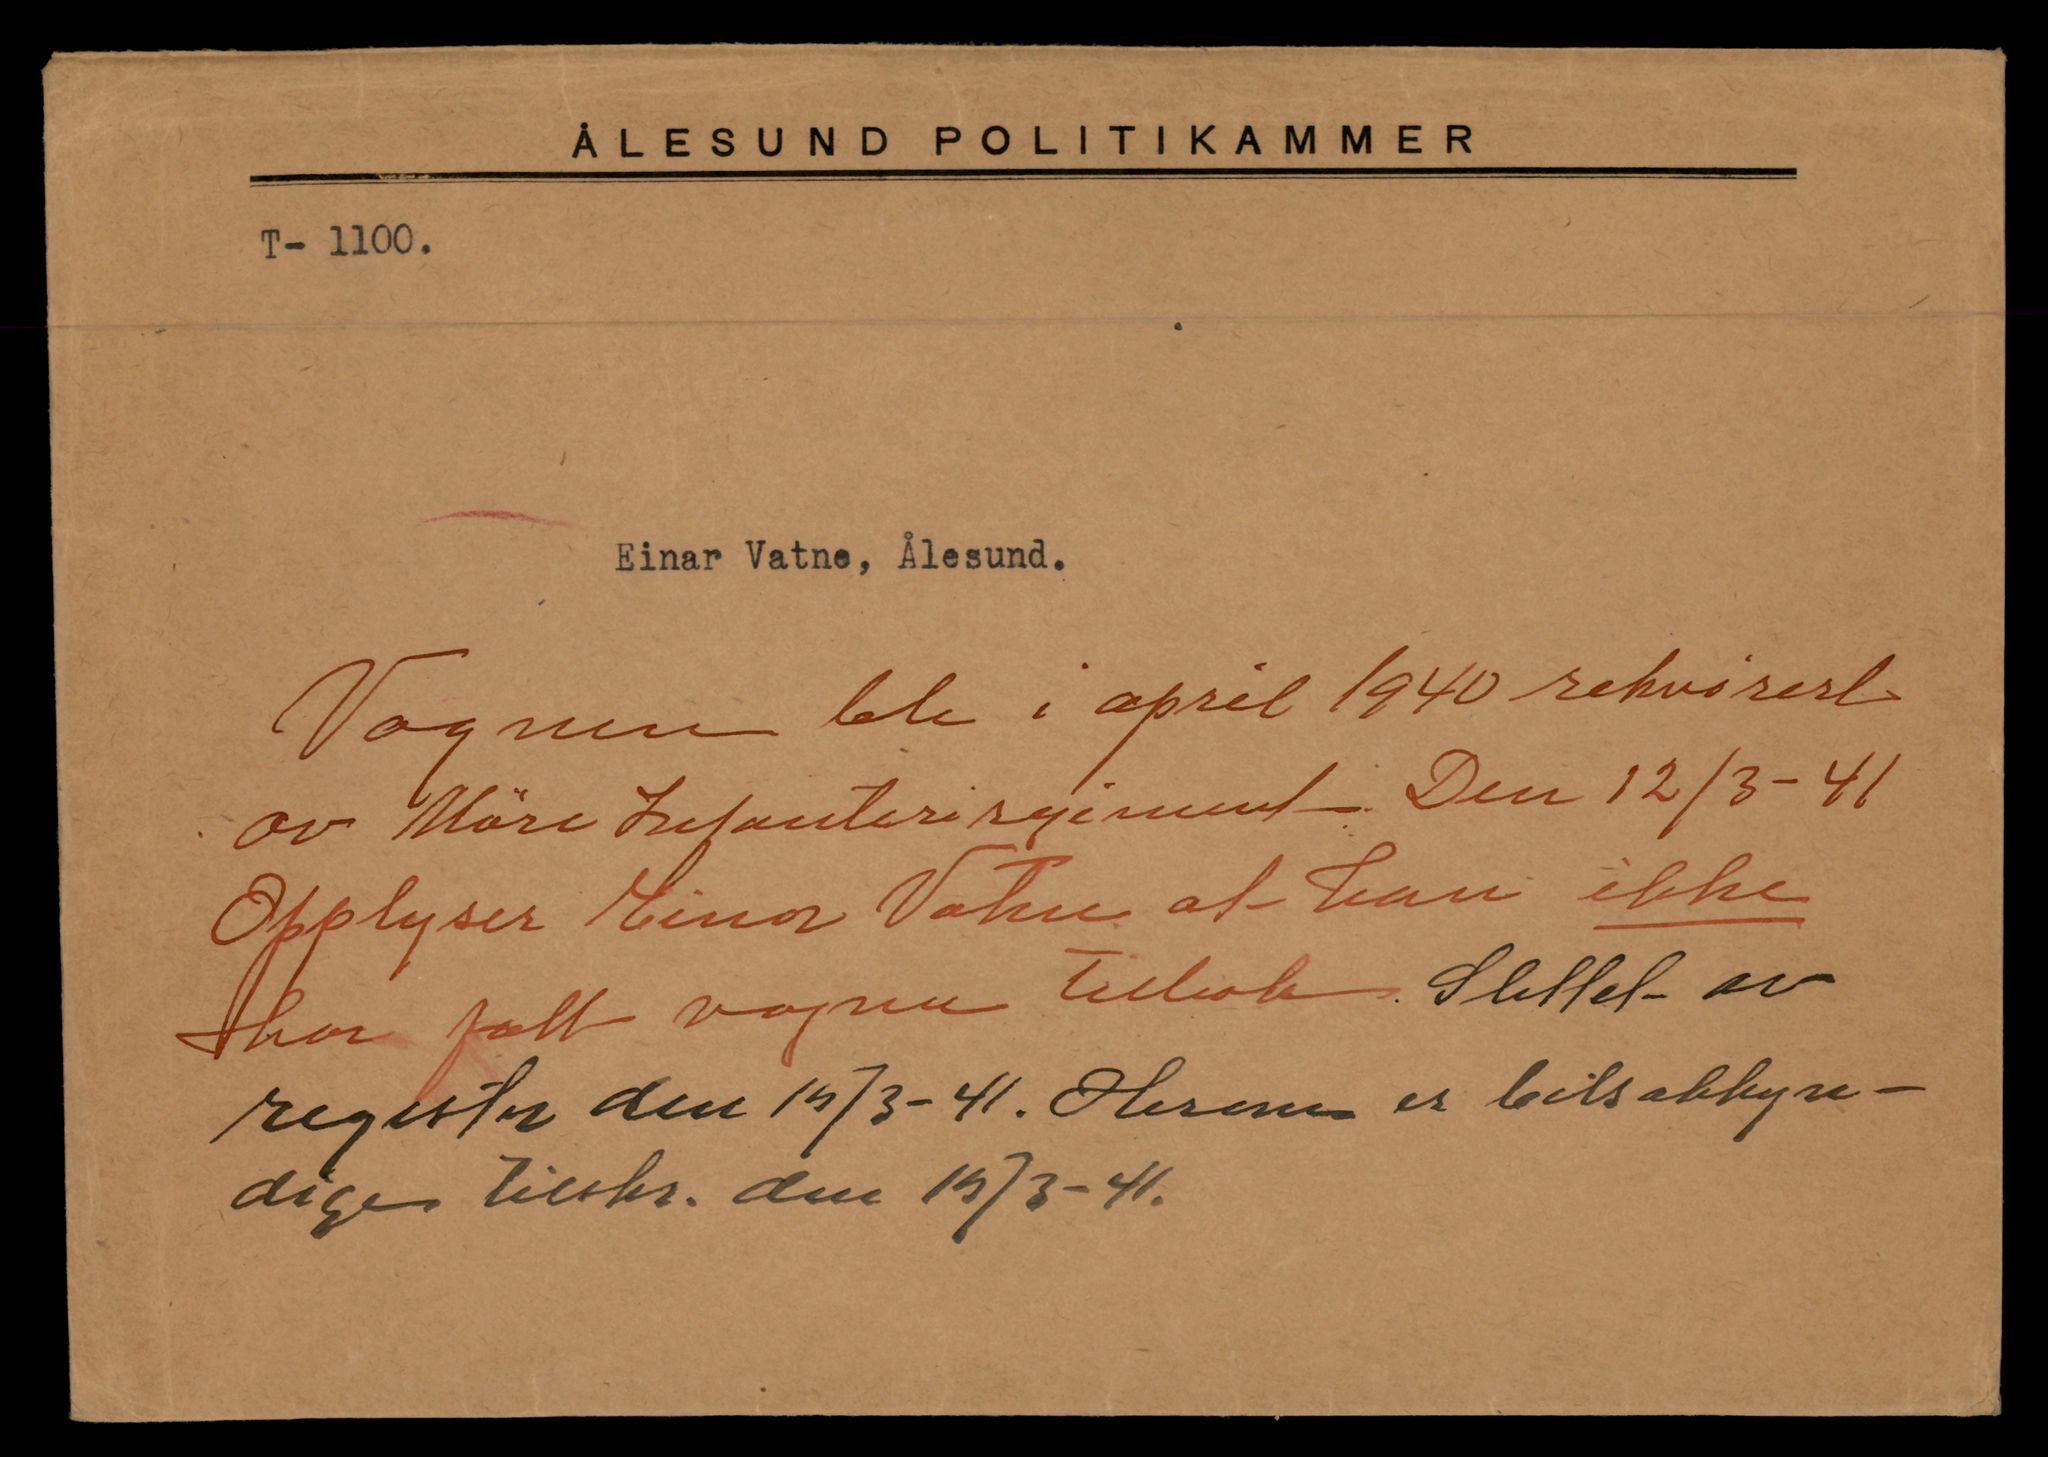 ÅLESUND POLITIKAMMER
T- 1100.
Einar Vatne, Ålesund.
Vognen ble i april 1940 rekvirert
av Möre Infanteriregiment. Den 12/3-41
Opplyser Einar Vatne at han ikke
har fått vognen tilbake. Slettet av
registr den 15/3-41. Herom er bilsakkyn-
dige tilskr. den 15/3-41.